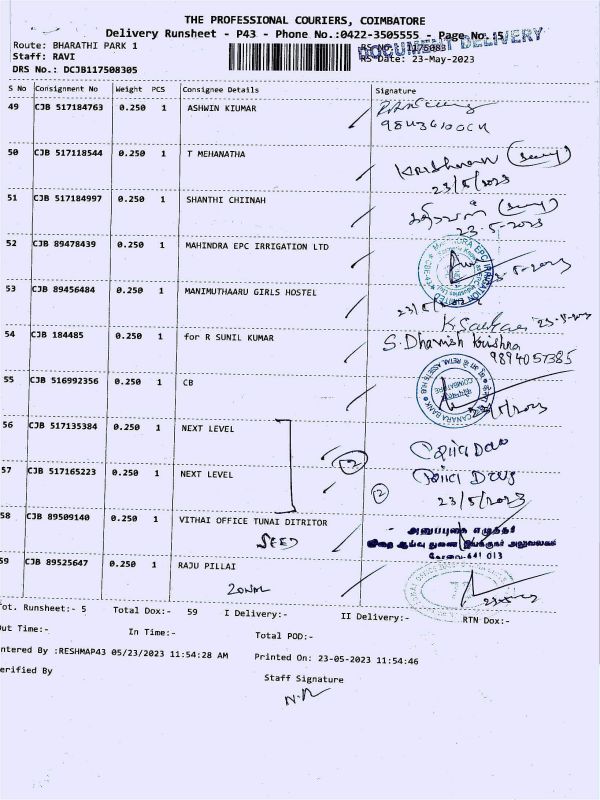 THE PROFESSIONAL COURIERS, COIMBATORE
Delivery Runsheet - P43 - Phone No.:0422-3505555 - Page No. :5
DOCUMENT DELIVERY
Route: BHARATHI PARK 1
RS No.: 1175083
Staff: RAVI
RS Date: 23-May-2023
DRS No.: DCJB117508305
S No Consignment No Weight PCS Consignee Details Signature
49 CJB 517184763 0.250 1 ASHWIN KIUMAR
50 CJB 517118544 0.250 1 T MEHANATHA
Krishnan
23/5/2023
51 CJB 517184997 0.250 1 SHANTHI CHIINAH
23-5-2023
52 CJB 89478439 0.250 1 MAHINDRA EPC IRRIGATION LTD
MAHINDRA EPC IRRIGATION LIMITED
CBE-41
23-5-2023
53 CJB 89456484 0.250 1 MANIMUTHAARU GIRLS HOSTEL
23/5/2023
54 CJB 184485 0.250 1 for R SUNIL KUMAR
S. Dhanish Krishna
9894057385
55 CJB 516992356 0.250 1 CB
CANARA BANK RETAIL ASSETS HUB
COIMBATORE
23/5/2023
56 CJB 517135384 0.250 1 NEXT LEVEL
57 CJB 517165223 0.250 1 NEXT LEVEL
23/5/2023
58 CJB 89509140 0.250 1 VITHAI OFFICE TUNAI DITRITOR
SEED
அனுப்புகை எழுத்தர்
விதை ஆய்வு துணை இயக்குநர் அலுவலகம்
கோவை-641 013
59 CJB 89525647 0.250 1 RAJU PILLAI
Tot. Runsheet:- 5 Total Dox:- 59 I Delivery:- II Delivery:- RTN Dox:-
Out Time:- In Time:- Total POD:-
Entered By :RESHMAP43 05/23/2023 11:54:28 AM Printed On: 23-05-2023 11:54:46
Verified By Staff Signature